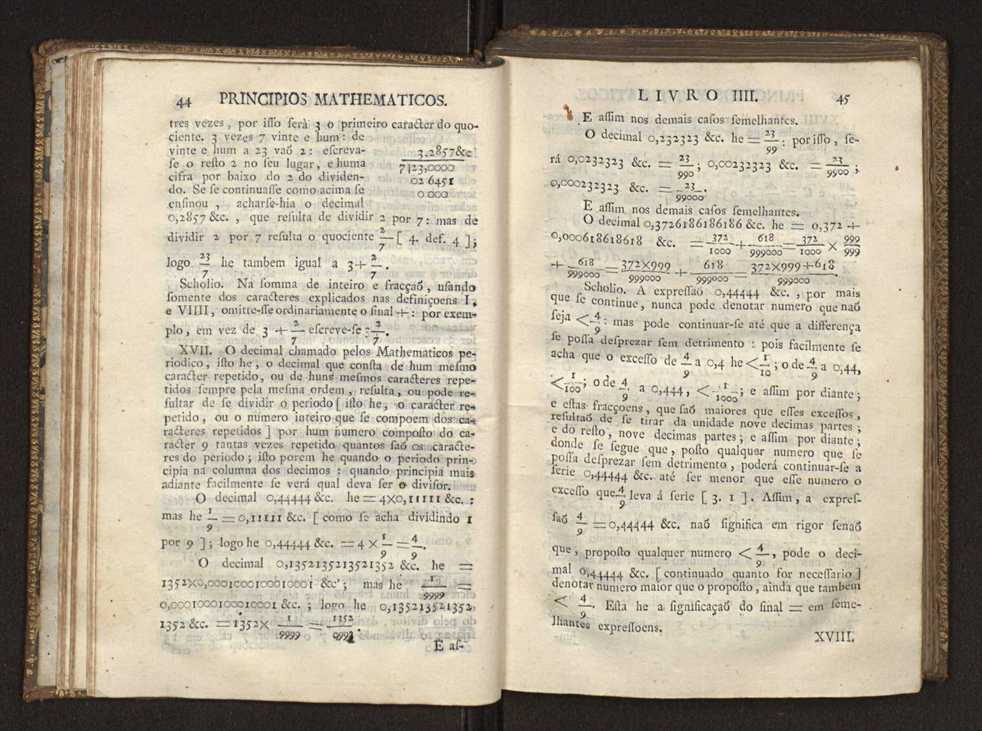 44 PRINCIPIOS MATHEMATICOS.
tres vezes, por iſſo ferà 3 o primeiro caracter do quo-
ciente. 3 vezes 7 vinte e hum: de
vinte e hum a 23 vaõ 2: eſcreva-
ſe o reſto 2 no ſeu lugar, e huma
cifra por baixo do 2 do dividen-
do. Se ſe continuaſſe como acima ſe
enſinou, acharſe-hia o decimal
3,2857&c
7|23,0000
02 6451
0 000
0,2857 &c., que reſulta de dividir 2 por 7: mas de
dividir 2 por 7 reſulta o quociente 2/7 [ 4. def. 4 ];
logo 23/7 he tambem igual a 3+2/7.
Scholio. Na ſomma de inteiro e fracçaõ, uſando
ſomente dos caracteres explicados nas definiçoens I,
e VIIII, omitte-ſe ordinariamente o ſinal +: por exem-
plo, em vez de 3 + 2/7 eſcreve-ſe 3 2/7.
XVII. O decimal chamado pelos Mathematicos pe-
riodico, iſto he, o decimal que conſta de hum meſmo
caracter repetido, ou de huns meſmos caracteres repe-
tidos ſempre pela meſma ordem, reſulta, ou pode re-
ſultar de ſe dividir o periodo [ iſto he, o caracter re-
petido, ou o número inteiro que ſe compoem dos ca-
racteres repetidos ] por hum numero compoſto do ca-
racter 9 tantas vezes repetido quantos ſaõ os caracte-
res do periodo; iſto porem he quando o periodo prin-
cipia na columna dos decimos: quando principia mais
adiante facilmente ſe verá qual deva ſer o diviſor.
O decimal 0,44444 &c. he = 4×0,11111 &c.:
mas he 1/9 = 0,11111 &c. [ como ſe acha dividindo 1
por 9 ]; logo he 0,44444 &c. = 4 × 1/9 = 4/9.
O decimal 0,1352135213521352 &c. he =
1352×0,0001000100010001 &c; mas he 1/9999 =
0,0001000100010001 &c.; logo he 0,135213521352
1352 &c. = 1352× 1/9999 = 1352/9999.
E aſ-
LIVRO IIII. 45
E aſſim nos demais caſos ſemelhantes.
O decimal 0,232323 &c. he = 23/99: por iſſo, ſe-
rá 0,0232323 &c. = 23/990; 0,00232323 &c. = 23/9900;
0,000232323 &c. = 23/99000.
E aſſim nos demais caſos ſemelhantes.
O decimal 0,3726186186186 &c. he = 0,372 +
0,000618618618 &c. = 372/1000 + 618/999000 = 372/1000 × 999/999
+ 618/999000 = 372×999/999000 + 618/999000 = 372×999+618/999000.
Scholio. A expreſſaõ 0,44444 &c., por mais
que ſe continue, nunca pode denotar numero que naõ
ſeja < 4/9: mas pode continuar-ſe até que a differença
ſe poſſa deſprezar ſem detrimento: pois facilmente ſe
acha que o exceſſo de 4/9 a 0,4 he < 1/10; o de 4/9 a 0,44,
< 1/100; o de 4/9 a 0,444, < 1/1000; e aſſim por diante;
e eſtas fracçoens, que ſaõ maiores que eſſes exceſſos,
reſultaõ de ſe tirar da unidade nove decimas partes;
e do reſto, nove decimas partes; e aſſim por diante;
donde ſe ſegue que, poſto qualquer numero que ſe
poſſa deſprezar ſem detrimento, poderá continuar-ſe a
ſerie 0,44444 &c. até ſer menor que eſſe numero o
exceſſo que 4/9 leva á ſerie [ 3. 1 ]. Aſſim, a expreſ-
ſaõ 4/9 = 0,44444 &c. naõ ſignifica em rigor ſenaõ
que, propoſto qualquer numero < 4/9, pode o deci-
mal 0,44444 &c. [ continuado quanto for neceſſario ]
denotar numero maior que o propoſto, ainda que tambem
< 4/9. Eſta he a ſignificaçaõ do ſinal = em ſeme-
lhantes expreſſoens.
XVIII.